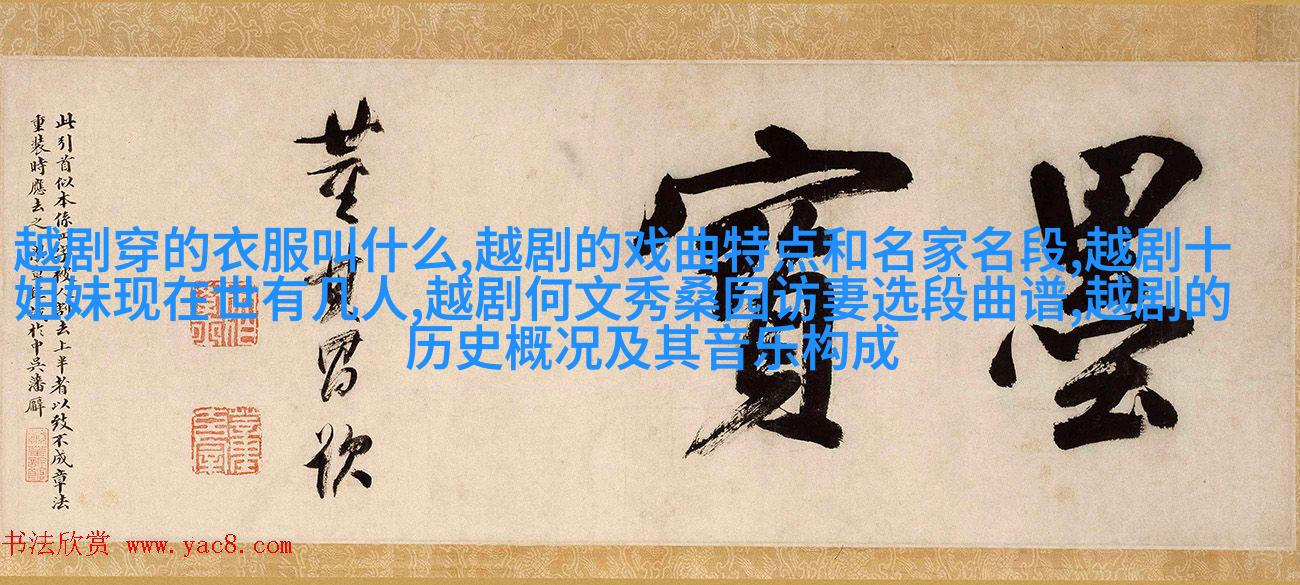 墨寶
董其昌題
此引首似本係
重裝時應去之
去上半者以致不成章法
於中吳潘廎
越剧穿的衣服叫什么,越剧的戏曲特点和名家名段,越剧十
姐妹现在世有几人,越剧何文秀桑园访妻选段曲谱,越剧的
历史概况及其音乐构成
书法欣赏 www.yac8.com